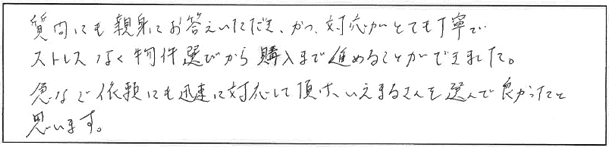 質問にも親身にお答えいただき、かつ、対応がとても丁寧で
ストレスなく物件選びから購入まで進めることができました。
急なご依頼にも迅速に対応して頂け、いえまるさんを選んで良かったと
思います。